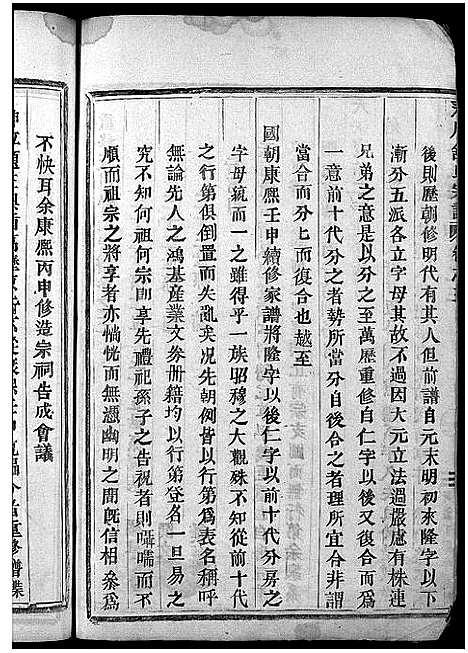 後則歷朝修明代有其人但前譜自元末明初來隆字以下
漸分五派各立字母其故不過因大元立法過嚴慮有株連
兄弟之意至於之至萬歷重修自仁字以後枝盛又復而爲
一意前十代分之者勢所當分自後合之者理所宜合非謂
當合而分七而復合也越至
國朝康熙壬申續修家譜將隆字以後仁字以前十代分房之
字母統而一之雖似乎一族昭穆之大觀殊不知從前十代
之行第俱倒置而失亂矣况先朝例皆以行第爲表名稱呼
無論先人之鴻基產業文券册籍均以行第登名一旦易之
究不知何祖何宗即享先禮祀孫子之告祝者則囁嚅而不
順而祖宗之將享者亦惝恍而無憑幽明之間旣信相叅爲
不怏耳余康熙丙申修造宗祠告成會議